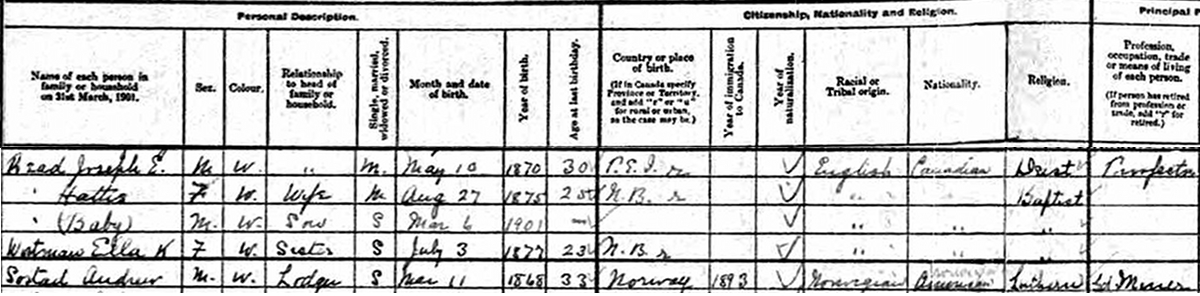 Personal Description. Citizenship, Nationality and Religion. Principal P
Name of each person in family or household on 31st March, 1901. Sex. Colour. Relationship to head of family or household. Single, married, widowed or divorced. Month and date of birth. Year of birth. Age at last birthday. Country or place of birth. (If in Canada specify Province or Territory, and add "r" or "u" for rural or urban, as the case may be.) Year of immigration to Canada. Year of naturalization. Racial or Tribal origin. Nationality. Religion. Profession, occupation, trade or means of living of each person. (If person has retired from profession or trade, add "r" for retired.)
Read Joseph E. M. W. " M. May 10 1870 30 P.E.I. r English Canadian
" Hattie F W. Wife M Aug 27 1875 25 N.B. r " " Baptist
" (Baby) M. W. Son S Mar 6 1901 — " " "
Wortman Ella K F W. Sister S July 3 1877 23 N.B. r " " "
Sostad Andrew M. W. Lodger S Mar 11 1868 33 Norway 1893 Norwegian American Miner